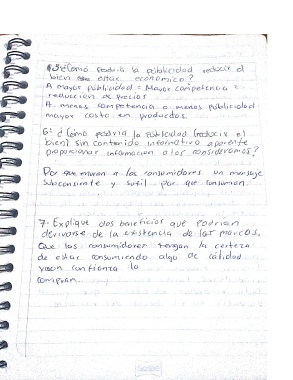 5. ¿Cómo podría la publicidad reducir el
bien estar económico?
A mayor publicidad = Mayor competencia =
reducción de precios
A menos competencia o menos publicidad
mayor costo en productos.
6: ¿Cómo podría la Publicidad (reducir el
bien) sin contenido informativo aparente
proporcionar información a los consumidores?
Por que mandan a los consumidores un mensaje
Subconsiente y sutil por que consuman.
7. Explique dos beneficios que podrían
derivarse de la existencia de las marcas.
Que los consumidores tengan la certeza
de estar consumiendo algo de calidad
y con confianza lo
compran.